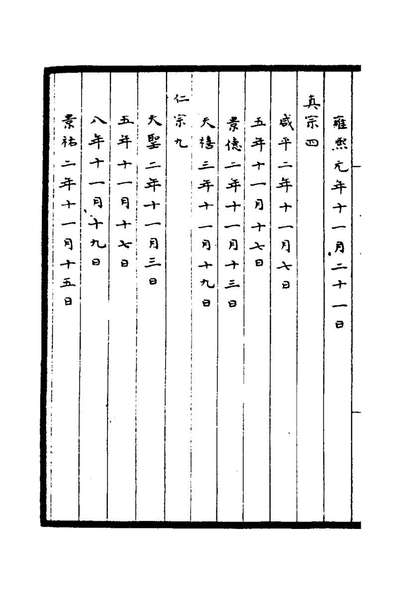 雍熙元年十一月二十一日
真宗四
咸平二年十一月七日
五年十一月十七日
景德二年十一月十三日
天禧三年十一月十九日
仁宗九
天聖二年十一月三日
五年十一月十七日
八年十一月十九日
景祐二年十一月十五日